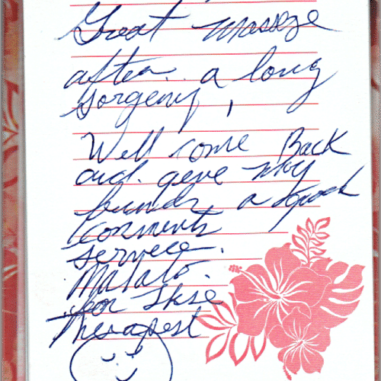 Great Massge
after a long
sorgery,
Well come Back
and geve my
funds a good
comments
servece.
Mahalo.
for thse
Therapest